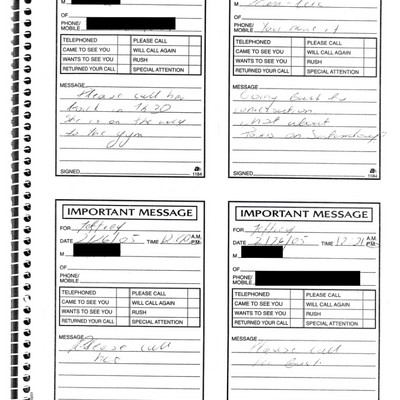 M
OF
PHONE/
MOBILE
TELEPHONED PLEASE CALL
CAME TO SEE YOU WILL CALL AGAIN
WANTS TO SEE YOU RUSH
RETURNED YOUR CALL SPECIAL ATTENTION
MESSAGE
Please call her
back in
She is on the way
to the gym
SIGNED
1184
M
OF
PHONE/
MOBILE
TELEPHONED PLEASE CALL
CAME TO SEE YOU WILL CALL AGAIN
WANTS TO SEE YOU RUSH
RETURNED YOUR CALL SPECIAL ATTENTION
MESSAGE
what about
on Saturday?
SIGNED
1184
IMPORTANT MESSAGE
FOR Jeffrey
DATE 2/26/05 TIME A.M.
P.M.
M
OF
PHONE/
MOBILE
TELEPHONED PLEASE CALL
CAME TO SEE YOU WILL CALL AGAIN
WANTS TO SEE YOU RUSH
RETURNED YOUR CALL SPECIAL ATTENTION
MESSAGE
Please call
her
IMPORTANT MESSAGE
FOR Jeffrey
DATE 2/26/05 TIME A.M.
P.M.
M
OF
PHONE/
MOBILE
TELEPHONED PLEASE CALL
CAME TO SEE YOU WILL CALL AGAIN
WANTS TO SEE YOU RUSH
RETURNED YOUR CALL SPECIAL ATTENTION
MESSAGE
Please call